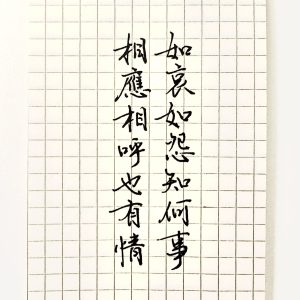 如哀如怨知何事
相應相呼也有情